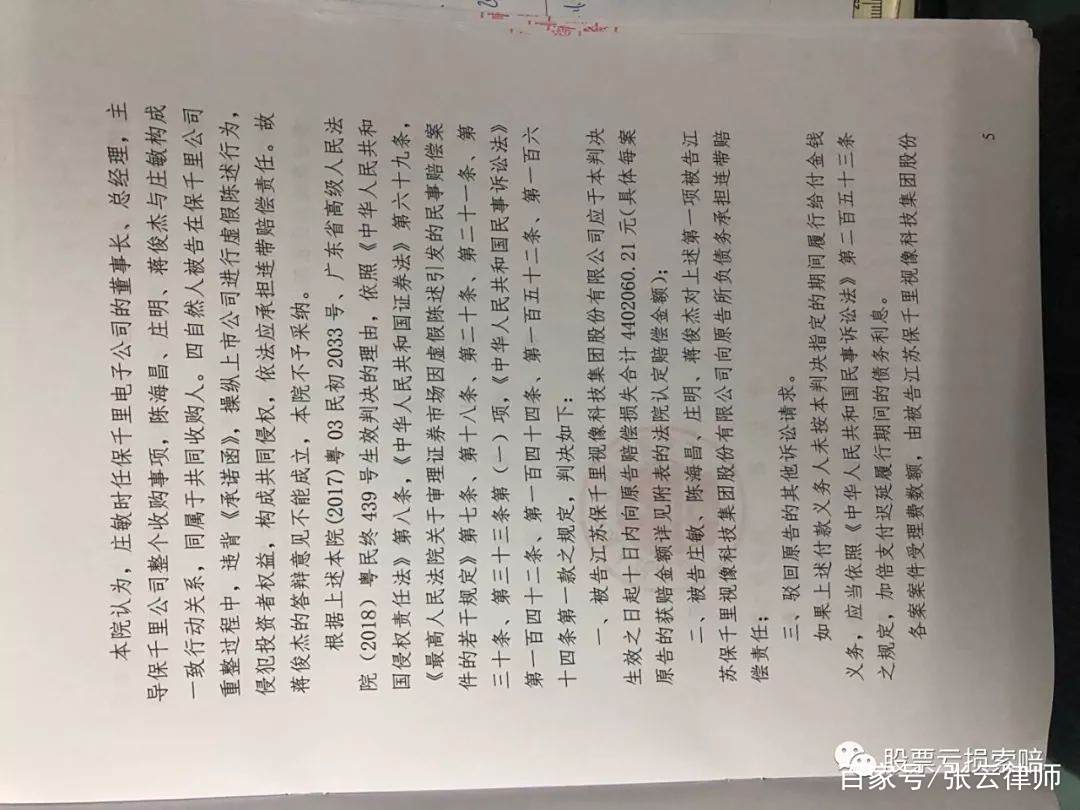 本院认为，庄敏时任保千里电子公司的董事长、总经理，主
导保千里公司整个收购事项，陈海昌、庄明、蒋俊杰与庄敏构成
一致行动关系，同属于共同收购人。四自然人被告在保千里公司
重整过程中，违背《承诺函》，操纵上市公司进行虚假陈述行为，
侵犯投资者权益，构成共同侵权，依法应承担连带赔偿责任。故
蒋俊杰的答辩意见不能成立，本院不予采纳。
根据上述本院(2017)粤 03 民初 2033 号、广东省高级人民法
院（2018）粤民终 439 号生效判决的理由，依照《中华人民共和
国侵权责任法》第八条，《中华人民共和国证券法》第六十九条，
《最高人民法院关于审理证券市场因虚假陈述引发的民事赔偿案
件的若干规定》第七条、第十八条、第二十条、第二十一条、第
三十条、第三十三条第（一）项，《中华人民共和国民事诉讼法》
第一百四十二条、第一百四十四条、第一百五十二条、第一百六
十四条第一款之规定，判决如下：
一、被告江苏保千里视像科技集团股份有限公司应于本判决
生效之日起十日内向原告赔偿损失合计 4402060.21 元(具体每案
原告的获赔金额详见附表的法院认定赔偿金额)；
二、被告庄敏、陈海昌、庄明、蒋俊杰对上述第一项被告江
苏保千里视像科技集团股份有限公司向原告所负债务承担连带赔
偿责任；
三、驳回原告的其他诉讼请求。
如果上述付款义务人未按本判决指定的期间履行给付金钱
义务，应当依照《中华人民共和国民事诉讼法》第二百五十三条
之规定，加倍支付迟延履行期间的债务利息。
各案案件受理费数额，由被告江苏保千里视像科技集团股份
5
股票亏损索赔
百家号/张云律师